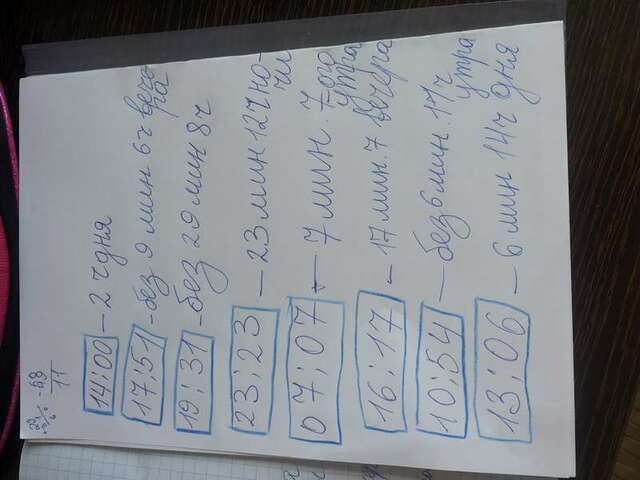 14:00 – 2 ч дня
17:51 - без 9 мин 6 ч вече-
ра
19:31 - без 29 мин 8 ч
23:23 – 23 мин 12 ч но-
чи
07:07 – 7 мин. 7 ого
утра
16:17 – 17 мин. 7 вечера
10:54 – без 6 мин. 11 ч
утра
13:06 – 6 мин 14 ч дня